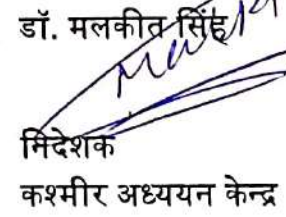 डॉ. मलकीत सिंह
निदेशक
कश्मीर अध्ययन केन्द्र